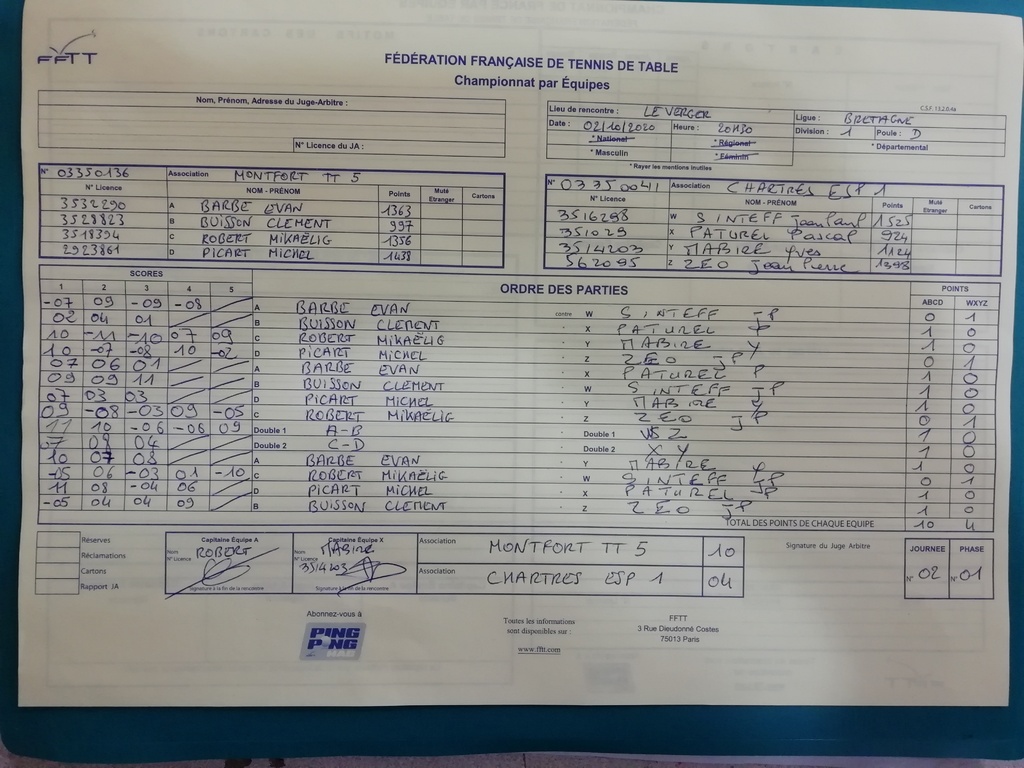 FFTT
FÉDÉRATION FRANÇAISE DE TENNIS DE TABLE
Championnat par Équipes
Nom, Prénom, Adresse du Juge-Arbitre :
N° Licence du JA :
Lieu de rencontre : LE VERGER
Date : 02/10/2020 Heure : 20H30
* National * Régional
* Masculin * Féminin
* Rayer les mentions inutiles
Ligue : BRETAGNE
Division : 1 Poule : D
* Départemental
N° 03350136 Association MONTFORT TT 5
N° Licence NOM - PRÉNOM Points Muté Etranger Cartons
3532290 A BARBE EVAN 1363
3528823 B BUISSON CLEMENT 997
3518394 C ROBERT MIKAËLIG 1356
2923861 D PICART MICHEL 1438
N° 03350041 Association CHARTRES ESP 1
N° Licence NOM - PRÉNOM Points Muté Etranger Cartons
3516298 W SINTEFF Jean Paul 1525
351029 X PATUREL Pascal 924
3514203 Y MABIRE Yves 1124
562095 Z ZEO Jean Pierre 1398
SCORES ORDRE DES PARTIES POINTS
1 2 3 4 5 ABCD WXYZ
-07 09 -09 -08 A BARBE EVAN contre W SINTEFF JP 0 1
02 04 01 B BUISSON CLEMENT X PATUREL P 1 0
10 -11 -10 07 09 C ROBERT MIKAËLIG Y MABIRE Y 1 0
10 -07 -08 10 -02 D PICART MICHEL Z ZEO JP 0 1
07 06 01 A BARBE EVAN X PATUREL P 1 0
09 09 11 B BUISSON CLEMENT W SINTEFF JP 1 0
07 03 03 D PICART MICHEL Y MABIRE Y 1 0
09 -08 -03 09 -05 C ROBERT MIKAËLIG Z ZEO JP 0 1
11 10 -06 -06 09 Double 1 A-B Double 1 W Z 1 0
07 08 04 Double 2 C-D Double 2 X Y 1 0
10 07 08 A BARBE EVAN Y MABIRE Y 1 0
-05 06 -03 01 -10 C ROBERT MIKAËLIG W SINTEFF JP 0 1
11 08 -04 06 D PICART MICHEL X PATUREL P 1 0
-05 04 04 09 B BUISSON CLEMENT Z ZEO JP 1 0
TOTAL DES POINTS DE CHAQUE EQUIPE 10 4
Réserves
Réclamations
Cartons
Rapport JA
Capitaine Équipe A
Nom ROBERT
N° Licence
Signature à la fin de la rencontre
Capitaine Équipe X
Nom MABIRE
N° Licence 3514203
Signature à la fin de la rencontre
Association MONTFORT TT 5 10
Association CHARTRES ESP 1 04
Signature du Juge Arbitre
JOURNEE PHASE
N° 02 N° 01
Abonnez-vous à
PING PONG MAG
Toutes les informations
sont disponibles sur :
www.fftt.com
FFTT
3 Rue Dieudonné Costes
75013 Paris